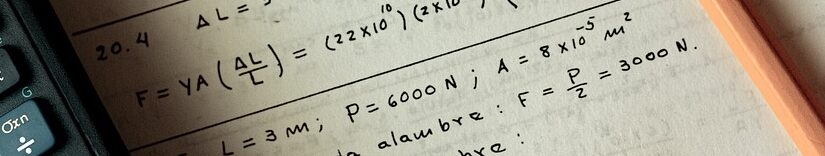 ΔL =
20.4
F = YA (ΔL/L) = (22×10¹⁰)(2×10
L = 3 m; P = 6000 N; A = 8×10⁻⁵ m²
alambre: F = P/2 = 3000 N.
G
σxn
÷